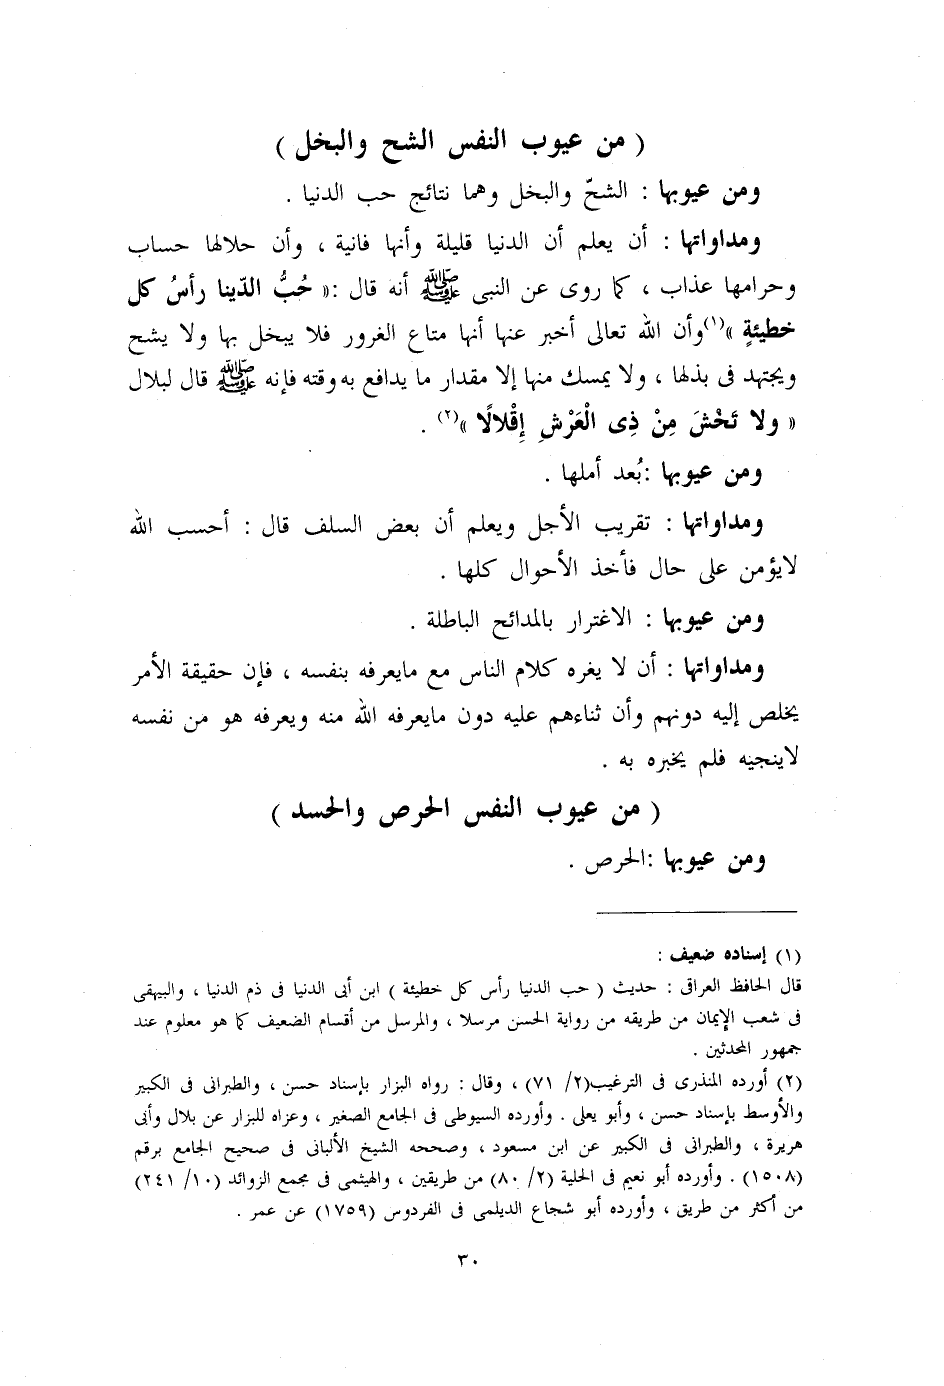 ( من عيوب النفس الشح والبخل )
ومن عيوبها : الشحّ والبخل وهما نتائج حب الدنيا .
ومداواتها : أن يعلم أن الدنيا قليلة وأنها فانية ، وأن حلالها حساب
وحرامها عذاب ، كما روى عن النبى ﷺ أنه قال :« حُبُّ الدّينا رأسُ كل
خطيئةٍ »(١)وأن الله تعالى أخبر عنها أنها متاع الغرور فلا يبخل بها ولا يشح
ويجتهد فى بذلها ، ولا يمسك منها إلا مقدار ما يدافع به وقته فإنه ﷺ قال لبلال
« ولا تَخْشَ مِنْ ذِى الْعَرْشِ إِقْلالًا »(٢) .
ومن عيوبها :بُعد أملها .
ومداواتها : تقريب الأجل ويعلم أن بعض السلف قال : أحسب الله
لايؤمن على حال فأخذ الأحوال كلها .
ومن عيوبها : الاغترار بالمدائح الباطلة .
ومداواتها : أن لا يغره كلام الناس مع مايعرفه بنفسه ، فإن حقيقة الأمر
يخلص إليه دونهم وأن ثناءهم عليه دون مايعرفه الله منه ويعرفه هو من نفسه
لاينجيه فلم يخبره به .
( من عيوب النفس الحرص والحسد )
ومن عيوبها :الحرص .
(١) إسناده ضعيف :
قال الحافظ العراقى : حديث ( حب الدنيا رأس كل خطيئة ) ابن أبى الدنيا فى ذم الدنيا ، والبيهقى
فى شعب الإيمان من طريقه من رواية الحسن مرسلا ، والمرسل من أقسام الضعيف كما هو معلوم عند
جمهور المحدثين .
(٢) أورده المنذرى فى الترغيب(٢/ ٧١) ، وقال : رواه البزار بإسناد حسن ، والطبرانى فى الكبير
والأوسط بإسناد حسن ، وأبو يعلى . وأورده السيوطى فى الجامع الصغير ، وعزاه للبزار عن بلال وأبى
هريرة ، والطبرانى فى الكبير عن ابن مسعود ، وصححه الشيخ الألبانى فى صحيح الجامع برقم
(١٥٠٨) . وأورده أبو نعيم فى الحلية (٢/ ٨٠) من طريقين ، والهيثمى فى مجمع الزوائد (١٠/ ٢٤١)
من أكثر من طريق ، وأورده أبو شجاع الديلمى فى الفردوس (١٧٥٩) عن عمر .
٣٠